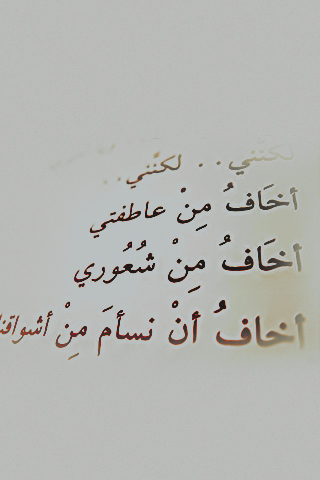 لكنني.. لكنّني..
أخَافُ مِنْ عاطفتي
أخَافُ مِنْ شُعُوري
أخافُ أنْ نسأمَ مِنْ أشواقنا